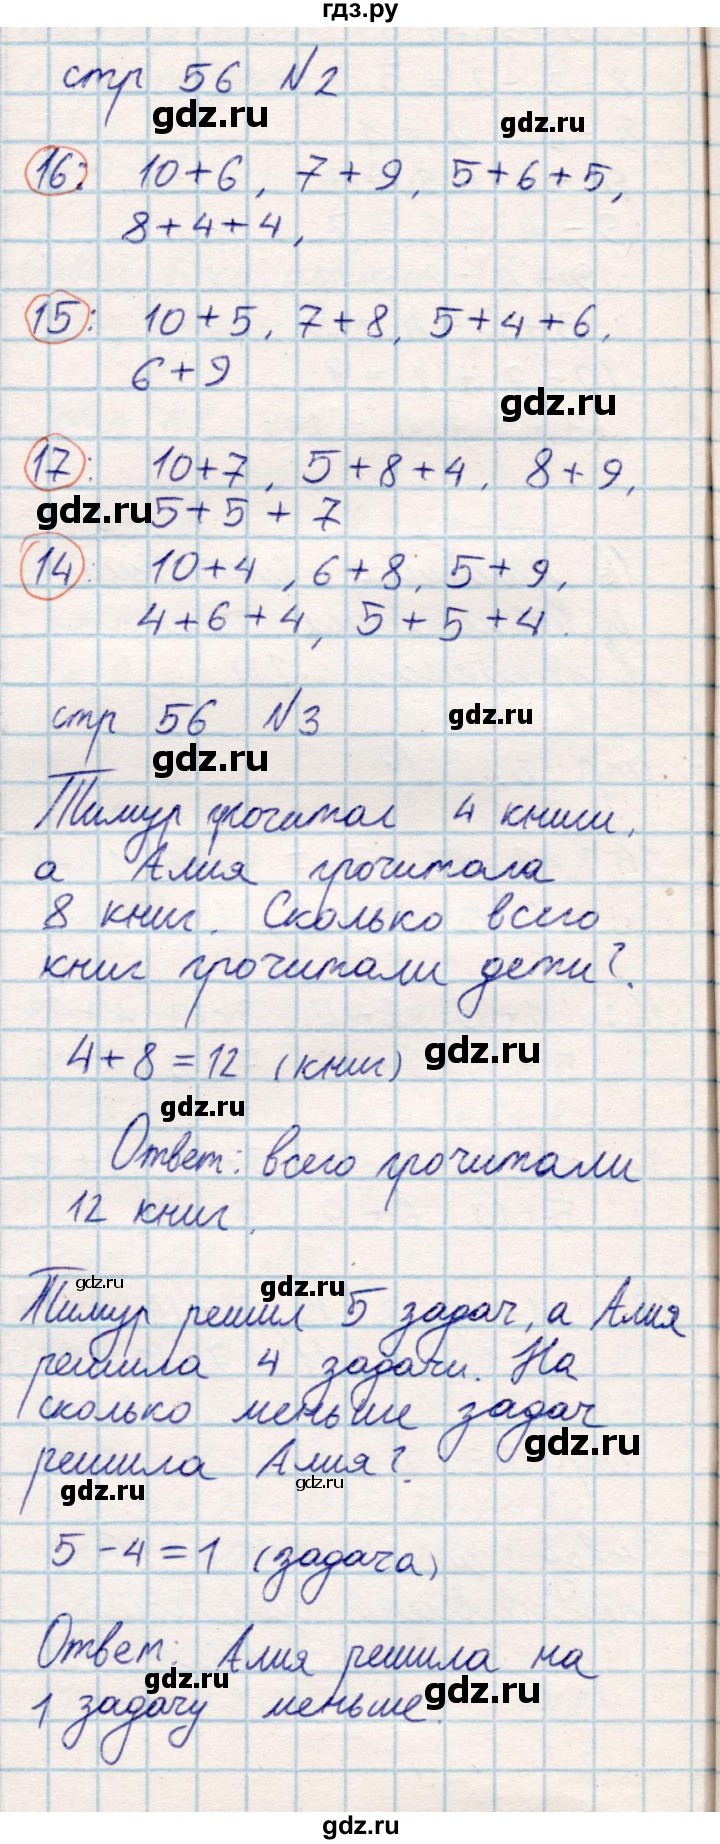 гдз.ру
стр 56 №2
gdz.ru gdz.ru
16: 10+6, 7+9, 5+6+5,
8+4+4,
15: 10+5, 7+8, 5+4+6,
6+9
gdz.ru
17: 10+7, 5+8+4, 8+9,
gdz.ru 5+5+7
14: 10+4, 6+8, 5+9,
4+6+4, 5+5+4.
стр 56 №3 gdz.ru
gdz.ru
Тимур прочитал 4 книги,
а Алия прочитала
8 книг. Сколько всего
книг прочитали дети?
4+8=12 (книг) gdz.ru
gdz.ru
Ответ: всего прочитали
12 книг.
gdz.ru gdz.ru
Тимур решил 5 задач, а Алия
решила 4 задачи. На
сколько меньше задач
решила Алия? gdz.ru
gdz.ru gdz.ru
5-4=1 (задача)
Ответ: Алия решила на
gdz.ru gdz.ru
1 задачу меньше.
gdz.ru